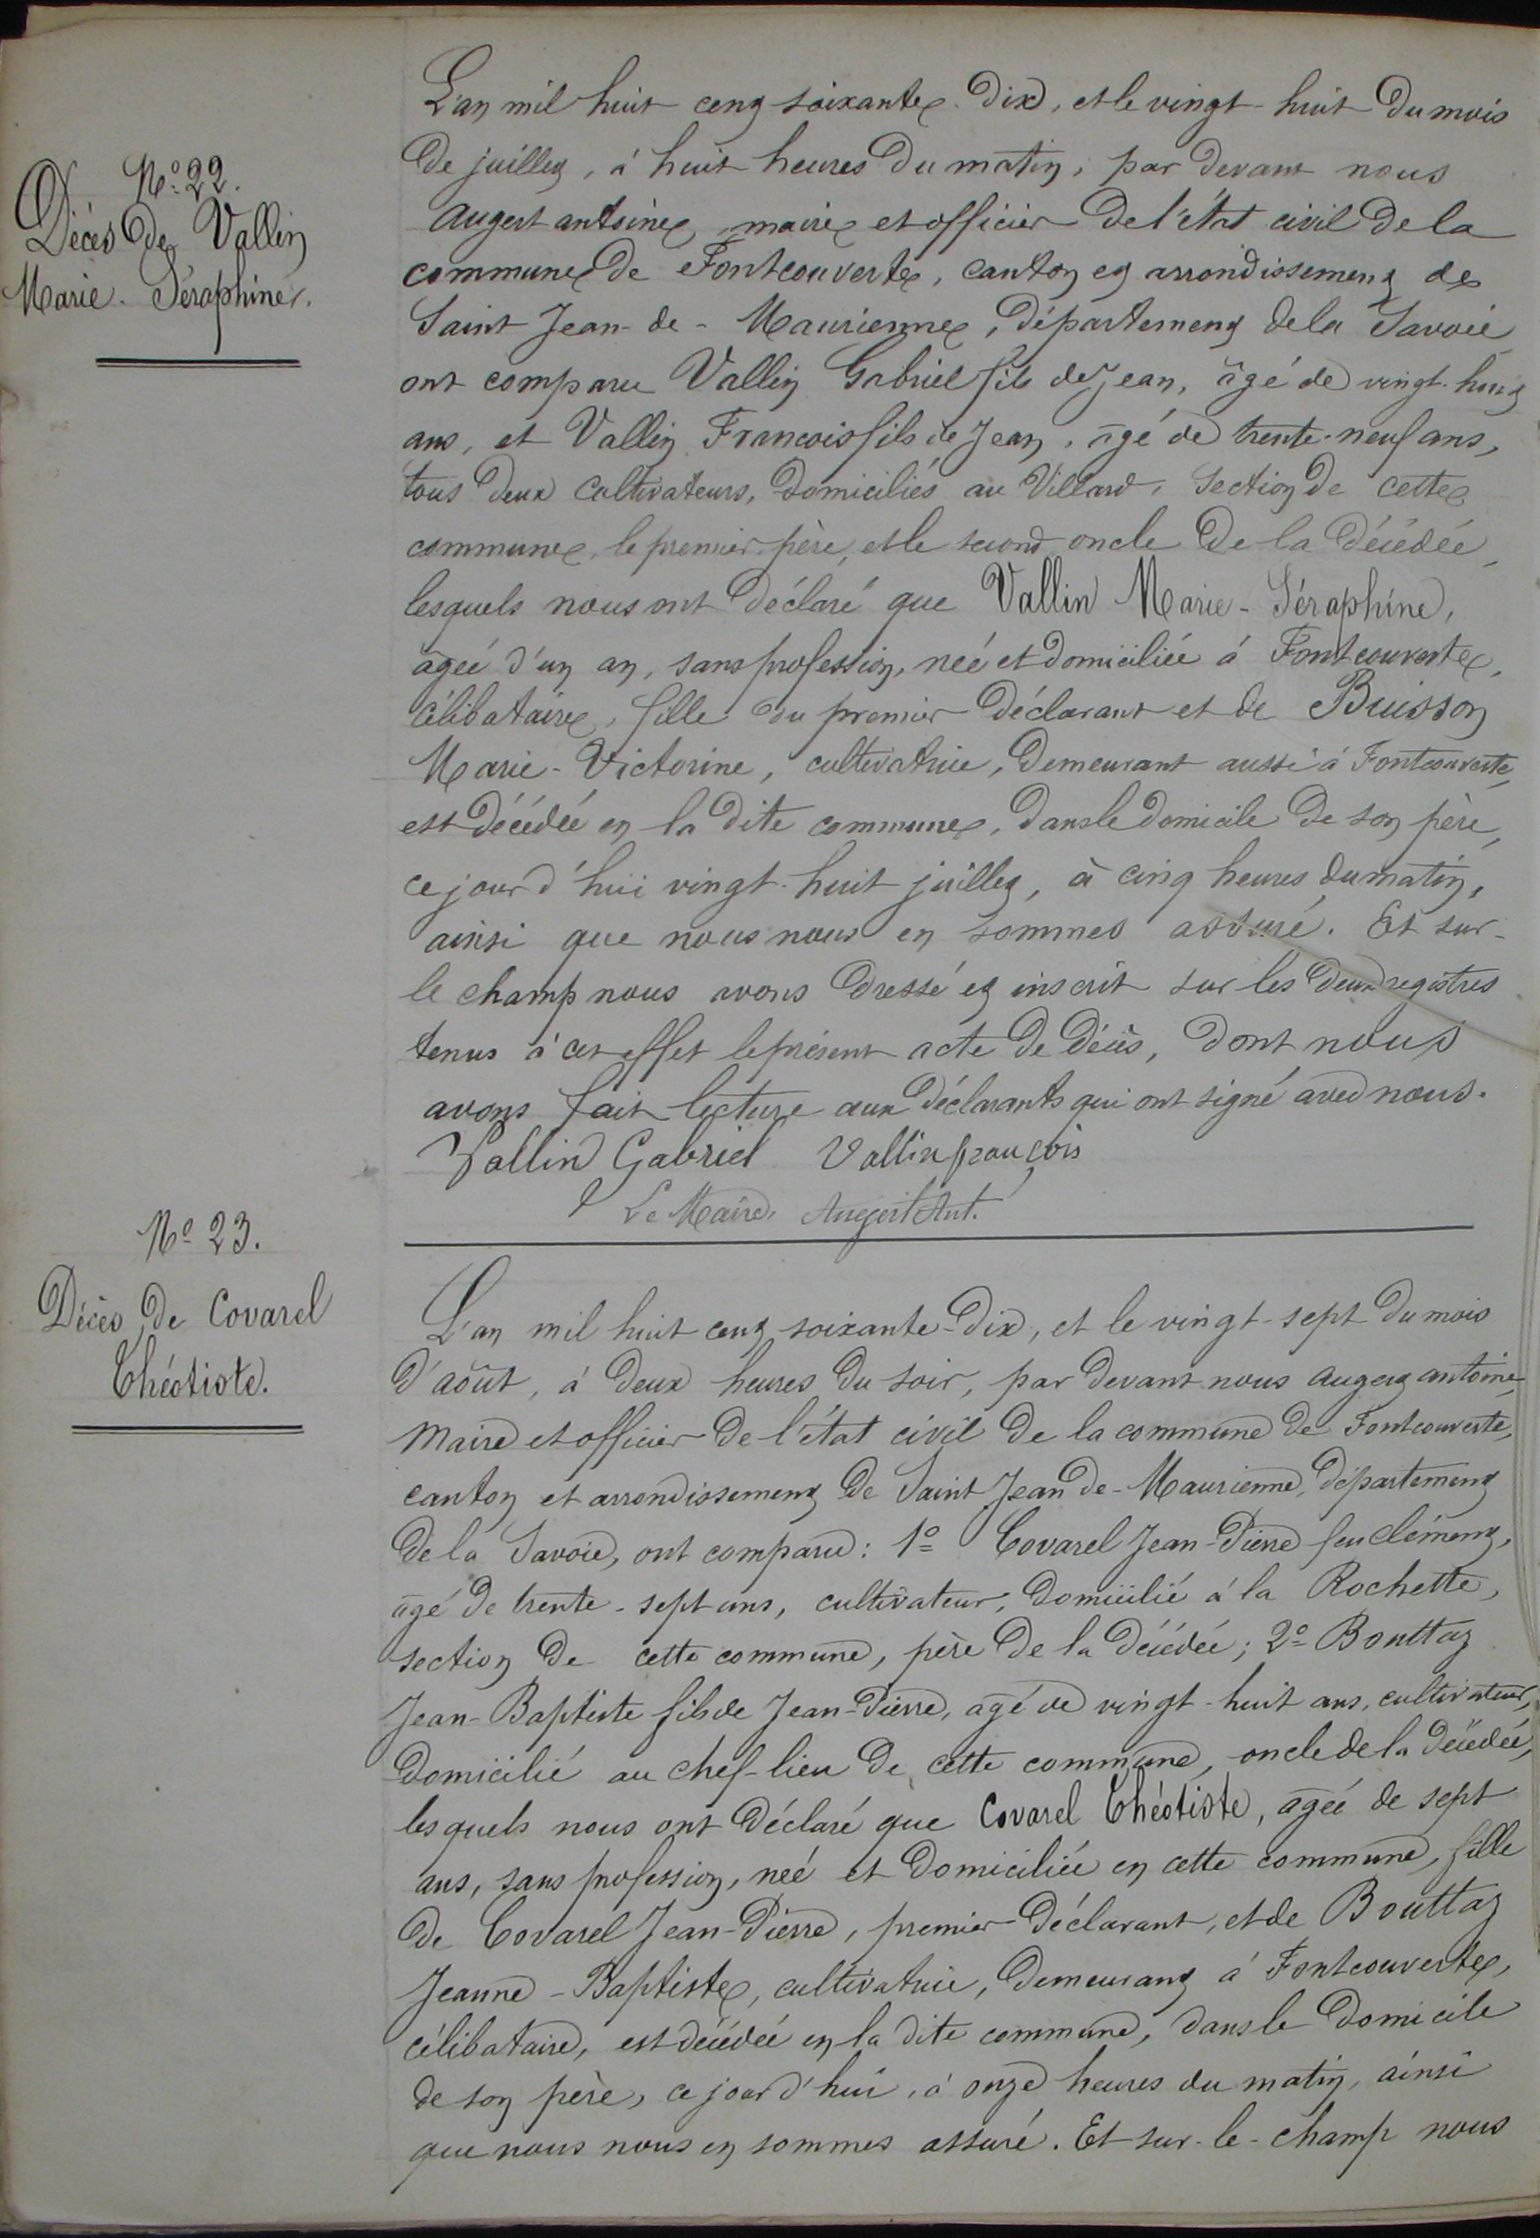 N.º 22.
Décès de Vallin
Marie-Séraphine.
L'an mil huit cent soixante-dix, et le vingt-huit du mois
de juillet, à huit heures du matin, par devant nous
augert antoine, maire et officier de l'état civil de la
commune de Fontcouverte, canton et arrondissement de
Saint Jean-de-Maurienne, département de la Savoie
ont comparu Vallin Gabriel fils de Jean, âgé de vingt-huit
ans, et Vallin Francois fils de Jean, âgé de trente-neuf ans,
tous deux cultivateurs, domiciliés au Villard, section de cette
commune, le premier père, et le second oncle de la décédée,
lesquels nous ont déclaré que Vallin Marie-Séraphine,
âgée d'un an, sans profession, née et domiciliée à Fontcouverte,
célibataire, fille du premier déclarant et de Buisson
Marie-Victorine, cultivatrice, demeurant aussi à Fontcouverte,
est décédée en la dite commune, dans le domicile de son père,
ce jour d'hui vingt-huit juillet, à cinq heures du matin,
ainsi que nous nous en sommes assuré. Et sur-
le champ nous avons dressé et inscrit sur les deux registres
tenus à cet effet le présent acte de décès, dont nous
avons fait lecture aux déclarants qui ont signé avec nous.
Vallin Gabriel Vallin françois
Le Maire, Augert Ant.
Nº 23.
Décès de Covarel
Théotiste.
L'an mil huit cent soixante-dix, et le vingt-sept du mois
d'août, à deux heures du soir, par devant nous augert antoine,
maire et officier de l'état civil de la commune de Fontcouverte,
canton et arrondissement de Saint Jean de-Maurienne, département
de la Savoie, ont comparu: 1º Covarel Jean-Pierre feu clément,
âgé de trente-sept ans, cultivateur, domicilié à la Rochette,
section de cette commune, père de la décédée; 2º Bouttaz
Jean-Baptiste fils de Jean-Pierre, âgé de vingt-huit ans, cultivateur,
domicilié au chef-lieu de cette commune, oncle de la décédée,
lesquels nous ont déclaré que Covarel Théotiste, âgée de sept
ans, sans profession, née et domiciliée en cette commune, fille
de Covarel Jean-Pierre, premier déclarant, et de Bouttaz
Jeanne-Baptiste, cultivatrice, demeurant à Fontcouverte,
célibataire, est décédée en la dite commune, dans le domicile
de son père, ce jour d'hui, à onze heures du matin, ainsi
que nous nous en sommes assuré. Et sur-le-champ nous